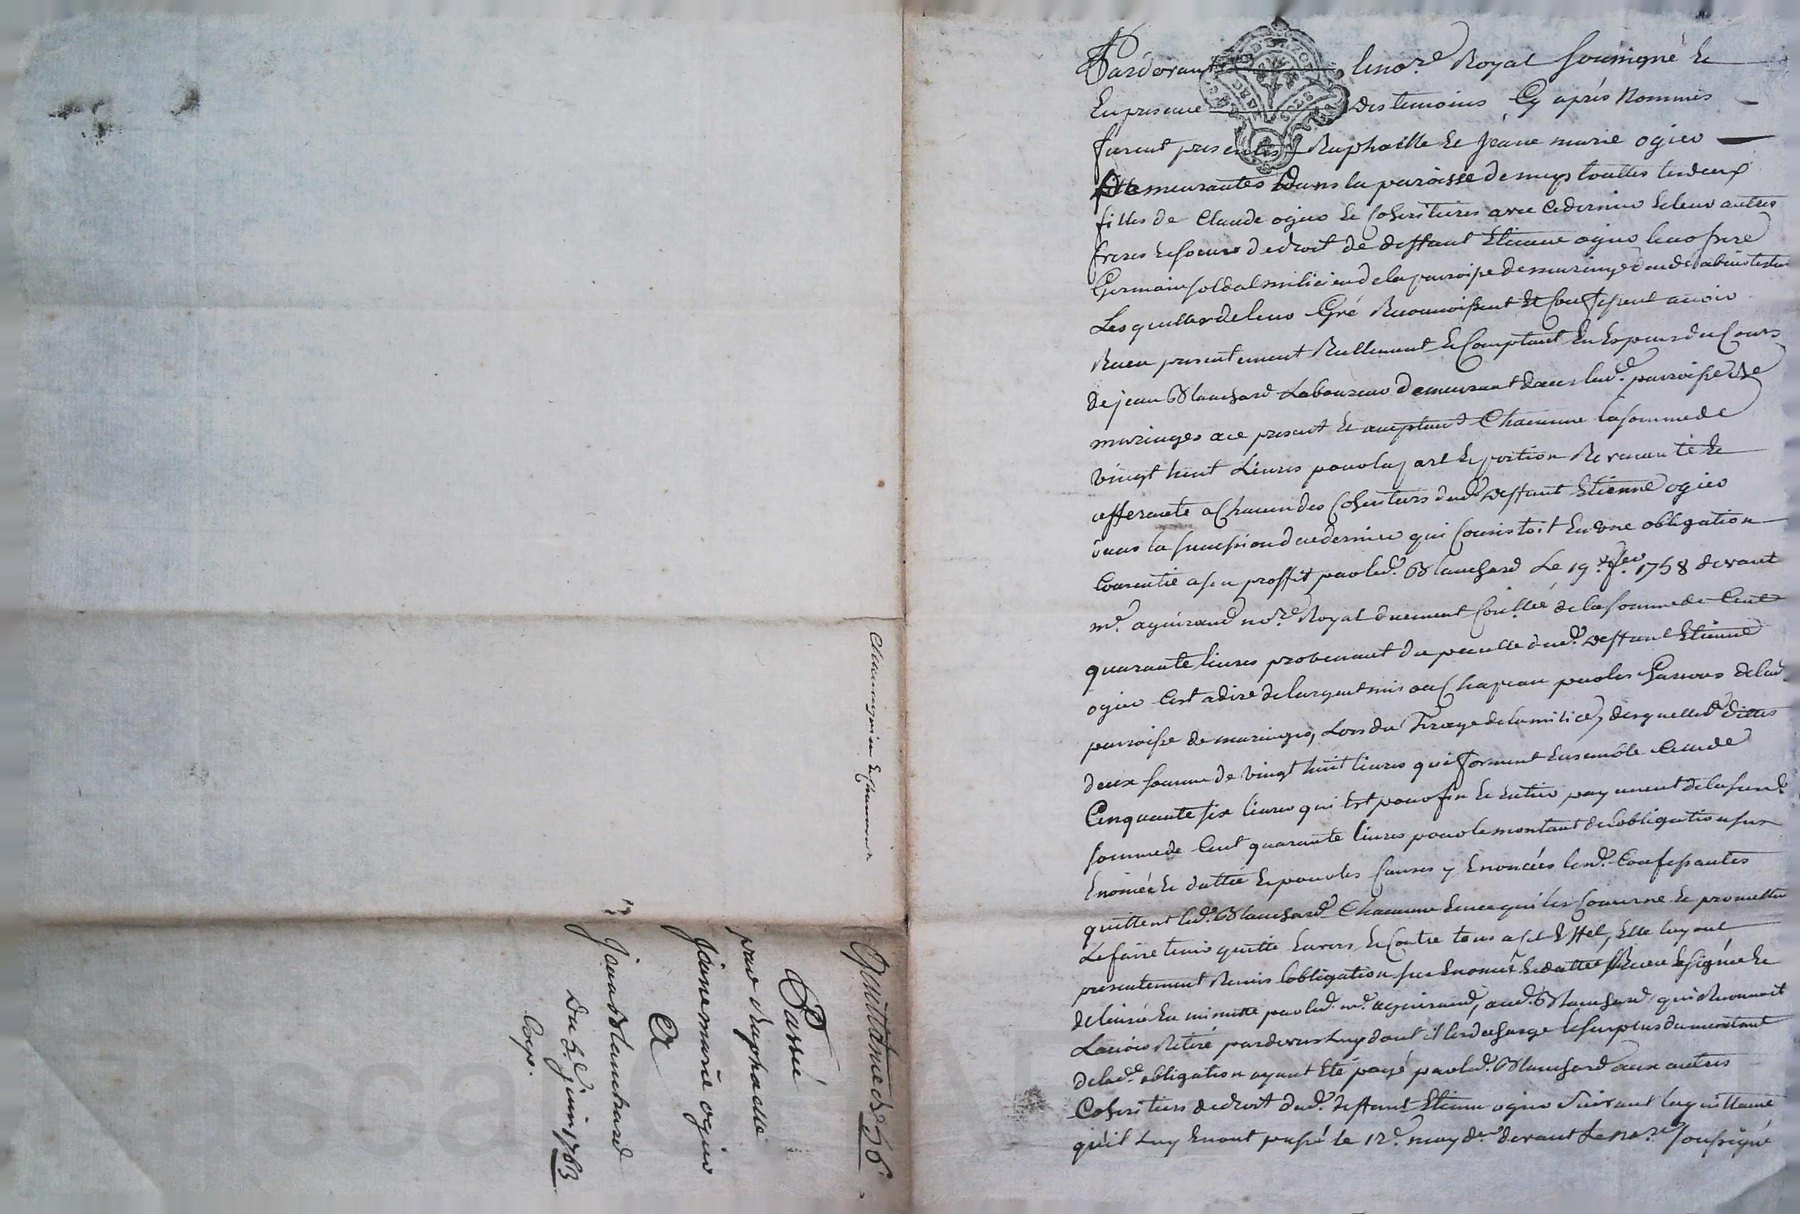 Pardevant le no.re Royal soussigné Et
En presence des temoins Cy aprés Nommés
furent presentes Raphaelle Et Jeane marie ogier
demeurantes Dans la paroisse de mys touttes les deux
filles de Claude ogier Et Coheritieres avec Ce dernier Et leur autres
freres Et soeurs de droit de deffunt Etienne ogier leur frere
Germain soldat milicien de la paroisse de maringes decedé abintestat
Lesquelles de leur Gré Reconnoissent Et Confessent avoir
Receu presentement Réellement Et Comptant En Especes du Cours
de jean Blanchard Laboureur demeurant dans lad.e paroisse de
maringes a ce present Et acceptant Chacune la somme de
vingt huit Livres pour la part Et portion Et
afferante a Chacun des Coheritiers dud.t deffunt Etienne ogier
dans la succession de ce dernier qui Consistoit En une obligation
Consentie a son proffit par led.t Blanchard Le 19.e 1758 devant
m.e aguiraud no.re Royal duement Con.llée de la somme de Cent
quarante livres provenant du pecule dud.t deffunt Etienne
ogier Cest a dire de largent mis au Chapeau par les Garcons de lad.
paroisse de maringes, Lors du Tirage de la milice, desquelles dittes
deux somme de vingt huit livres qui forment Ensemble Celle de
Cinquante six livres qui Est pour fin Et Entier payement de la susd.
somme de Cent quarante livres pour le montant de lobligation sus
Enoncée Et dattée Et pour les Causes y Enoncées lesd. Confessantes
quittent led.t Blanchard Chacune En ce qui les Concerne Et promettent
Le faire tenir quitte Envers Et Contre tous a cet Effet, Elle luy ont
presentement Remis lobligation sus Enoncée Et dattée Receu Et signée Et
delivré En minutte par led.t m.e aguiraud, aud.t Blanchard, qui Reconnoit
Lavoir Retiré pardevers Luy dont il les decharge le surplus du montant
de lad.e obligation ayant Eté payé par led.t Blanchard aux autres
Coheritiers de droit dud.t deffunt Etienne ogier Suivant la quittance
quil Luy En ont passé le 12.e may d.er devant Le no.re soussigné
Quittance de 56
Passé
par Raphaelle
Jeanne marie ogier
A
Jean Blanchard
Du 5.e Juin 1763
Exp.